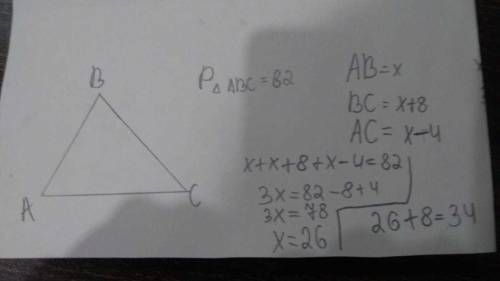 B
A
C
P△ABC=82
AB=x
BC=x+8
AC=x-4
x+x+8+x-4=82
3x=82-8+4
3x=78
x=26
26+8=34